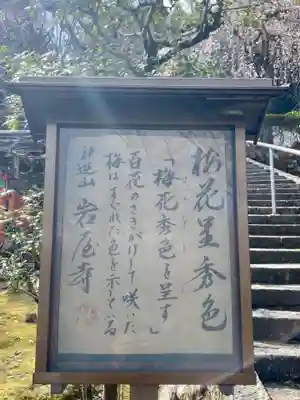 梅花呈秀色
「梅花秀色を呈す」
百花のさきがけとして咲いた
梅はすぐれた色を示している
岩屋寺